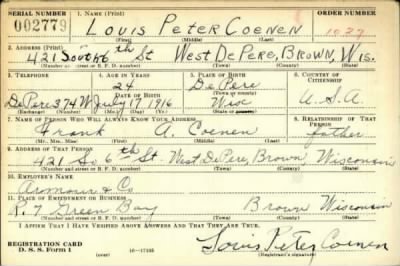 SERIAL NUMBER 1. NAME (Print) ORDER NUMBER
002779 LOUIS PETER COENEN 1027
(First) (Middle) (Last)
2. ADDRESS (Print)
421 SOUTH 6th St WEST DE PERE, BROWN, WIS.
(Number and street or R. F. D. number) (Town) (County) (State)
3. TELEPHONE 4. AGE IN YEARS 5. PLACE OF BIRTH 6. COUNTRY OF CITIZENSHIP
24 De Pere
DATE OF BIRTH (Town or county)
De Pere 374W July 17 1916 Wisc U.S.A.
(Exchange) (Number) (Mo.) (Day) (Yr.) (State or country)
7. NAME OF PERSON WHO WILL ALWAYS KNOW YOUR ADDRESS 8. RELATIONSHIP OF THAT PERSON
Frank A. Coenen father
(Mr., Mrs., Miss) (First) (Middle) (Last)
9. ADDRESS OF THAT PERSON
421 So 6th St. West De Pere, Brown Wisconsin
(Number and street or R. F. D. number) (Town) (County) (State)
10. EMPLOYER'S NAME
Armour & Co
11. PLACE OF EMPLOYMENT OR BUSINESS
R. 7 Green Bay Brown Wisconsin
(Number and street or R. F. D. number) (Town) (County) (State)
I AFFIRM THAT I HAVE VERIFIED ABOVE ANSWERS AND THAT THEY ARE TRUE.
REGISTRATION CARD
D. S. S. Form 1 16-17105 Louis Peter Coenen
(Registrant's signature)